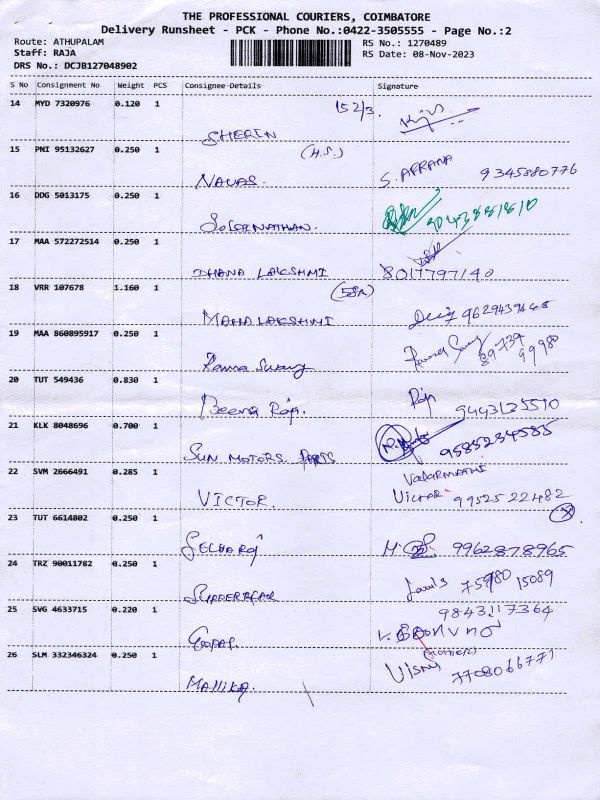 THE PROFESSIONAL COURIERS, COIMBATORE
Delivery Runsheet - PCK - Phone No.:0422-3505555 - Page No.:2
Route: ATHUPALAM
RS No.: 1270489
Staff: RAJA
RS Date: 08-Nov-2023
DRS No.: DCJB127048902
S No Consignment No Weight PCS Consignee Details Signature
14 MYD 7320976 0.120 1 152/3.
SHERIN
15 PNI 95132627 0.250 1 (H.S.)
NAVAS. S. AFRANA 9345880776
16 DDG 5013175 0.250 1
17 MAA 572272514 0.250 1
DHANA LAKSHMI 8017797140
18 VRR 107678 1.160 1 (58A)
MAHALAKSHMI
19 MAA 860895917 0.250 1
Rama Swamy 89739 99980
20 TUT 549436 0.830 1
Beena Raja. Raja 9443135510
21 KLK 8048696 0.700 1
SUN MOTORS PARTS 9585234585
22 SVM 2666491 0.285 1
VICTOR. Victor 9952522482
23 TUT 6614802 0.250 1
SELVARAJ 9962878965
24 TRZ 90011782 0.250 1
SUNDERAJAN 75980 15089
25 SVG 4633715 0.220 1 9843117364
GOPAL
26 SLM 332346324 0.250 1 (mother)
Mallika. Visnu 7708066771